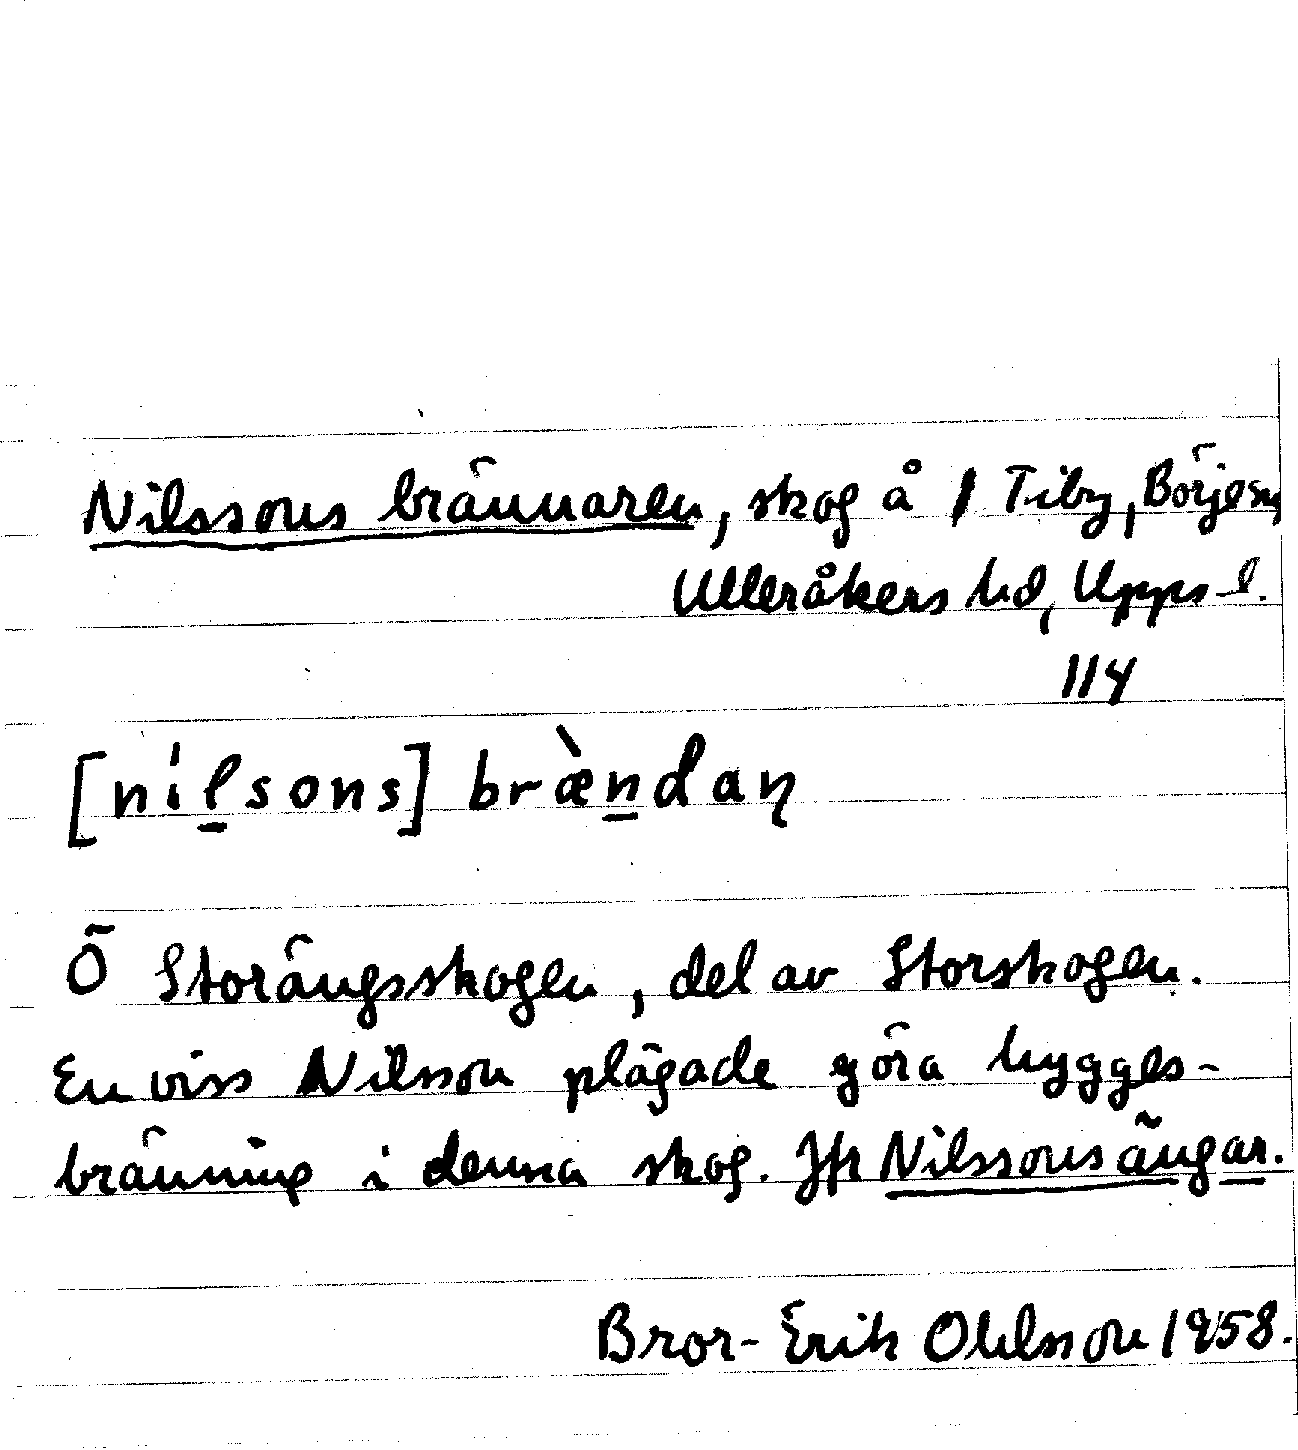 Nilssons brännaren, skog å 1 Tiby, Börje sn,
Ulleråkers hd, Upps l.
114
[nílsons] bræ̀ndaɳ
Ö Storängsskogen, del av Storskogen.
En viss Nilsson plägade göra hygges-
bränning i denna skog. Jfr Nilssonsängar.
Bror-Erik Ohlsson 1958.